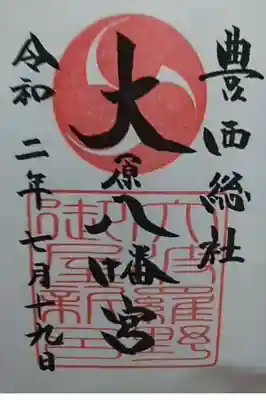 豊西総社
大原八幡宮
令和二年七月十九日